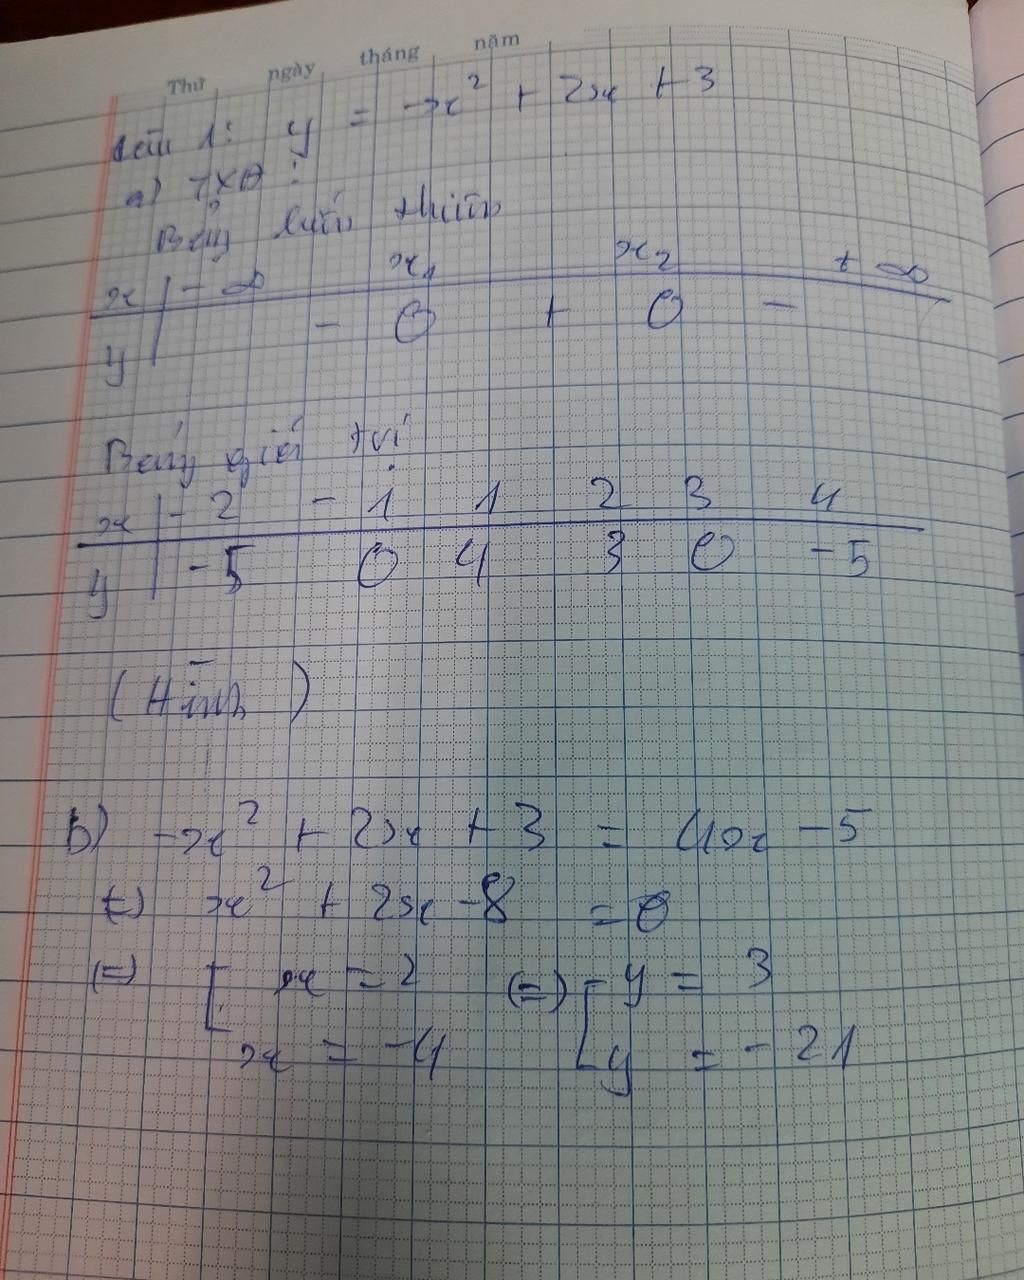 Thứ ngày tháng năm
Câu 1: y = -x² + 2x + 3
a) TXĐ :
Bảng biến thiên
x | -∞ x₁ x₂ +∞
y | - 0 + 0 -
Bảng giá trị
x | -2 -1 1 2 3 4
y | -5 0 4 3 0 -5
(Hình)
b) -x² + 2x + 3 = 4x - 5
(=) x² + 2x - 8 = 0
(=) [ x = 2 (=) [ y = 3
x = -4 y = -21